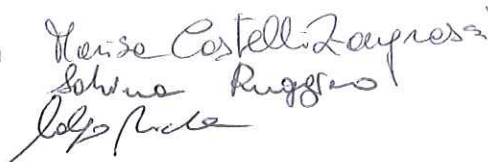 Marisa Costelli Zangrossi
Sabina Ruggiero